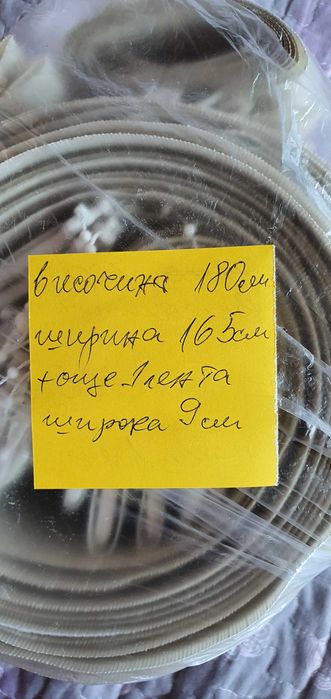 височина 180см
ширина 165см
+още 1 лента
широка 9см